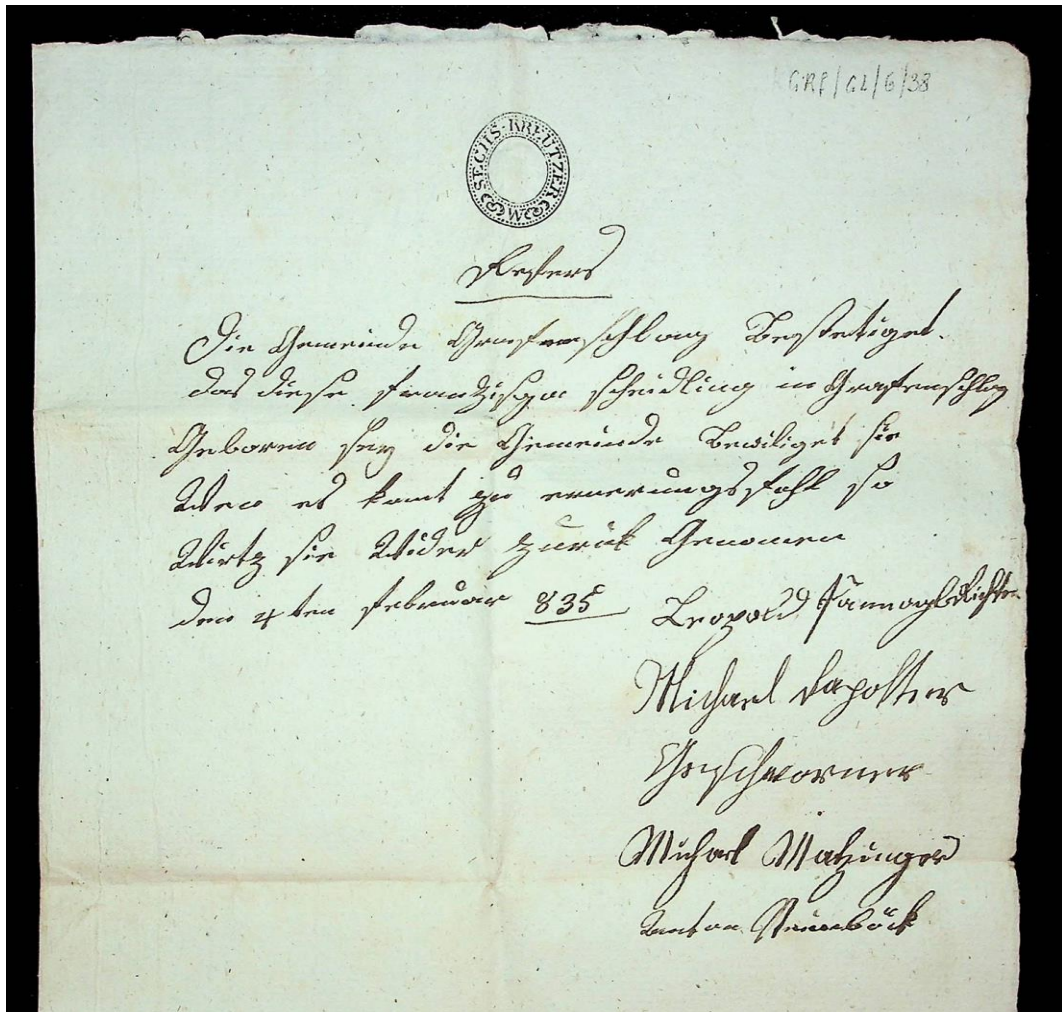 GRF/GL/6/38
SECHS·KREUTZER
W
Refers
Die Gemeinde Grafenschlag Bestetiget.
das diese Franzisga scheidling in Grafenschlag
Geboren sey die Gemeinde Bewiliget sie
Wen es komt zu ererungsfohl so
Wirtz sie Wider zurük Genomen
den 4ten Februar 835
Leopold Richter
Michael
Geschworner
Michael Matzinger
Anton